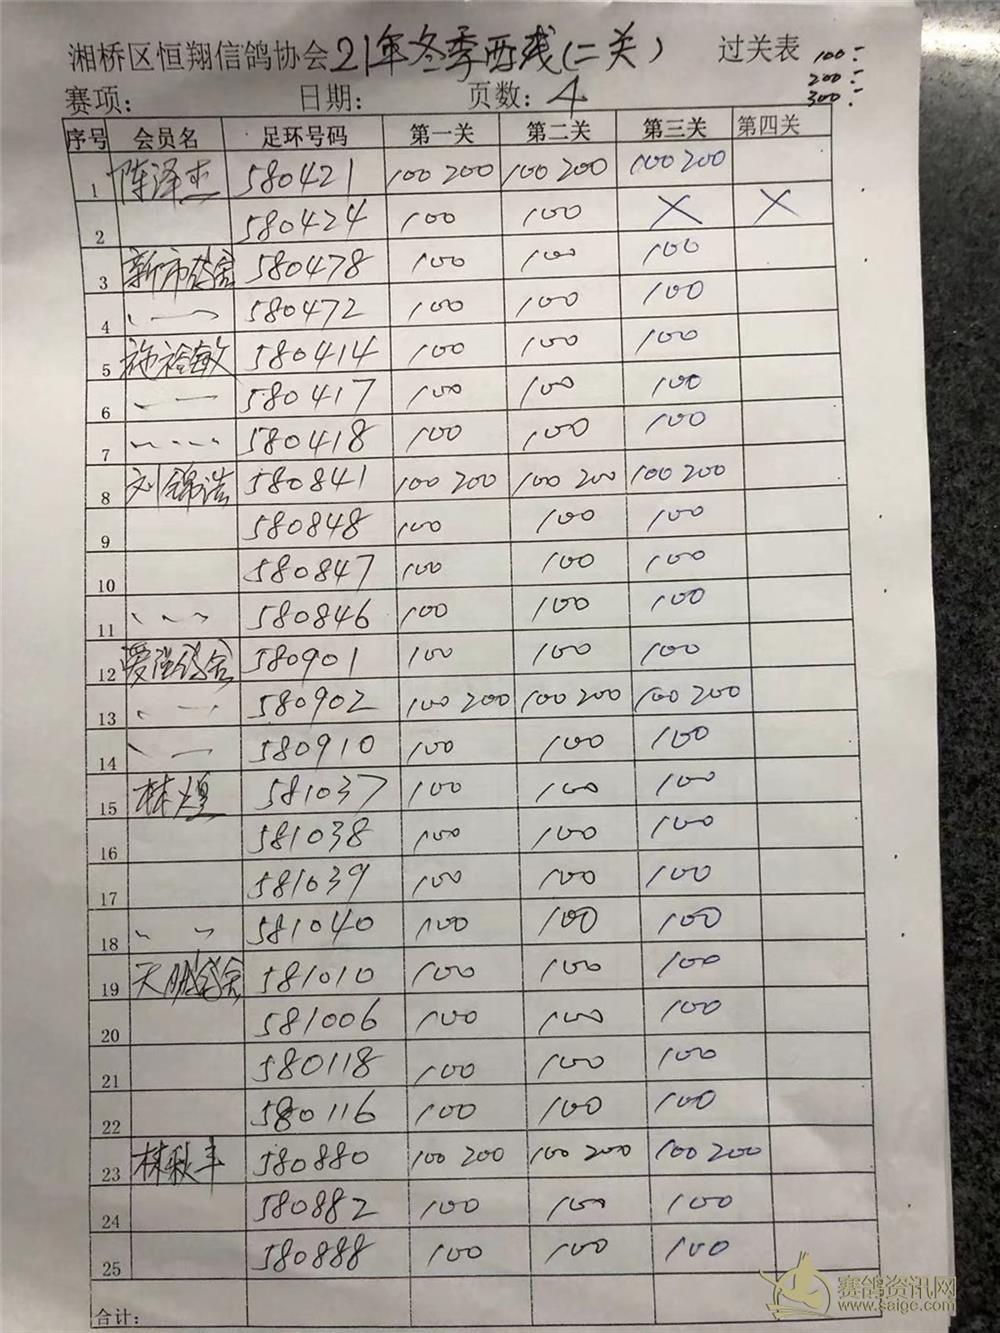 湘桥区恒翔信鸽协会21年冬季西线(二关) 过关表 100:
200:
300:
赛项: 日期: 页数: 4
序号 会员名 足环号码 第一关 第二关 第三关 第四关
1 陈泽杰 580421 100 200 100 200 100 200
2 580424 100 100 × ×
3 新市鸽舍 580478 100 100 100
4 580472 100 100 100
5 580414 100 100 100
6 580417 100 100 100
7 580418 100 100 100
8 刘锦浩 580841 100 200 100 200 100 200
9 580848 100 100 100
10 580847 100 100 100
11 580846 100 100 100
12 爱强鸽舍 580901 100 100 100
13 580902 100 200 100 200 100 200
14 580910 100 100 100
15 林煌 581037 100 100 100
16 581038 100 100 100
17 581039 100 100 100
18 581040 100 100 100
19 天鹏鸽舍 581010 100 100 100
20 581006 100 100 100
21 580118 100 100 100
22 580116 100 100 100
23 林秋丰 580880 100 200 100 200 100 200
24 580882 100 100 100
25 580888 100 100 100
合计:
赛鸽资讯网
www.saige.com